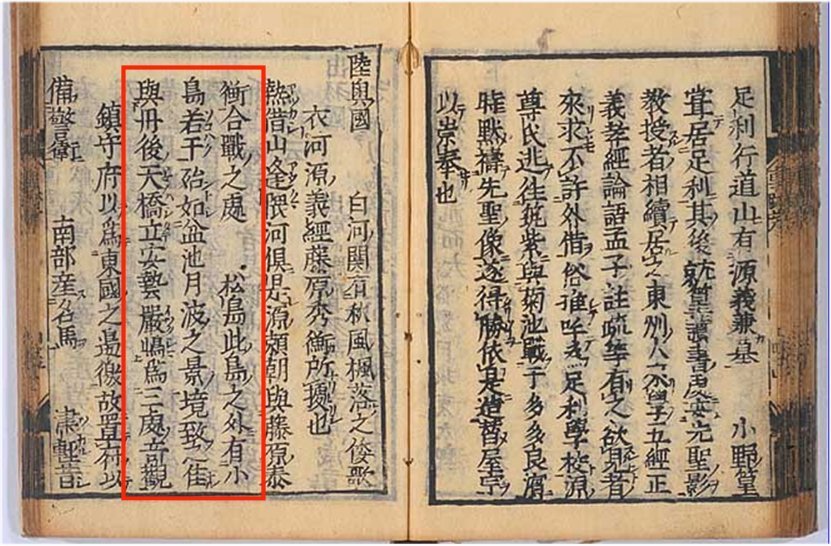 足利行道山有源義兼墓 小野篁
甞居足利其後就其讀書處安先聖影
教授者相續居之東州人來學五經正
義孝經論語孟子註疏等有之欲見者
來求不許外借俗呼為足利學校源
尊氏逃往筑紫與菊池戰于多多良濱
時默禱先聖像遂得勝依是造替屋宇
以崇奉也
陸奥國 白河關有秋風楓落之俊歌
衣河源義經藤原秀衡所擾也
熱借山逢隈河俱是源頼朝與藤原泰
衡合戰之處 松島此島之外有小
島若干殆如盆池月波之景境致之佳
與丹後天橋立安藝嚴嶋為三處奇觀
鎮守府以為東國之邊徼故置府以
備警衛 南部産名馬 津輕昔